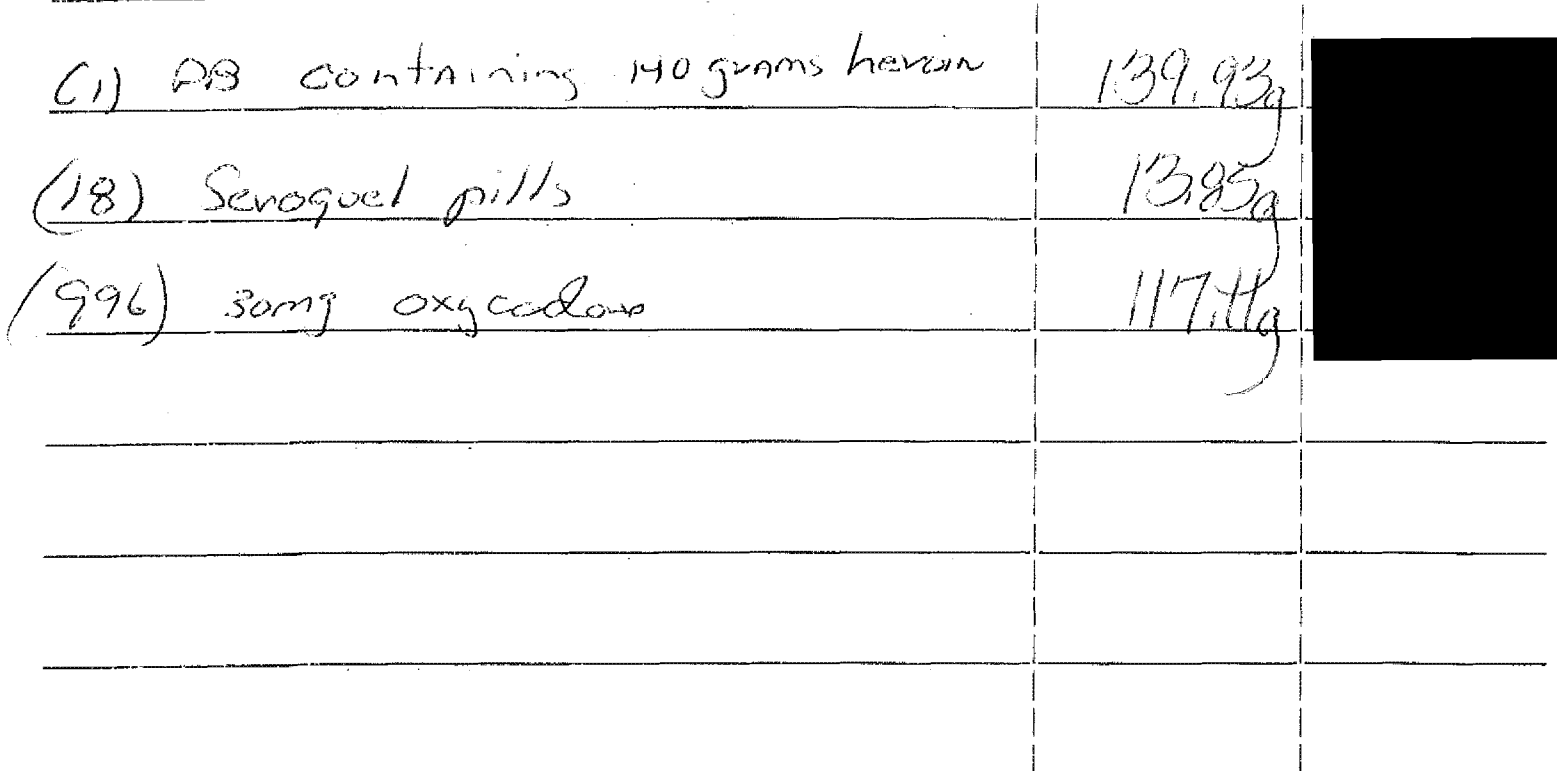 (1) PB containing 140 grams heroin 139.93g
(18) Seroquel pills 13.85g
(996) 30mg oxycodone 117.11g